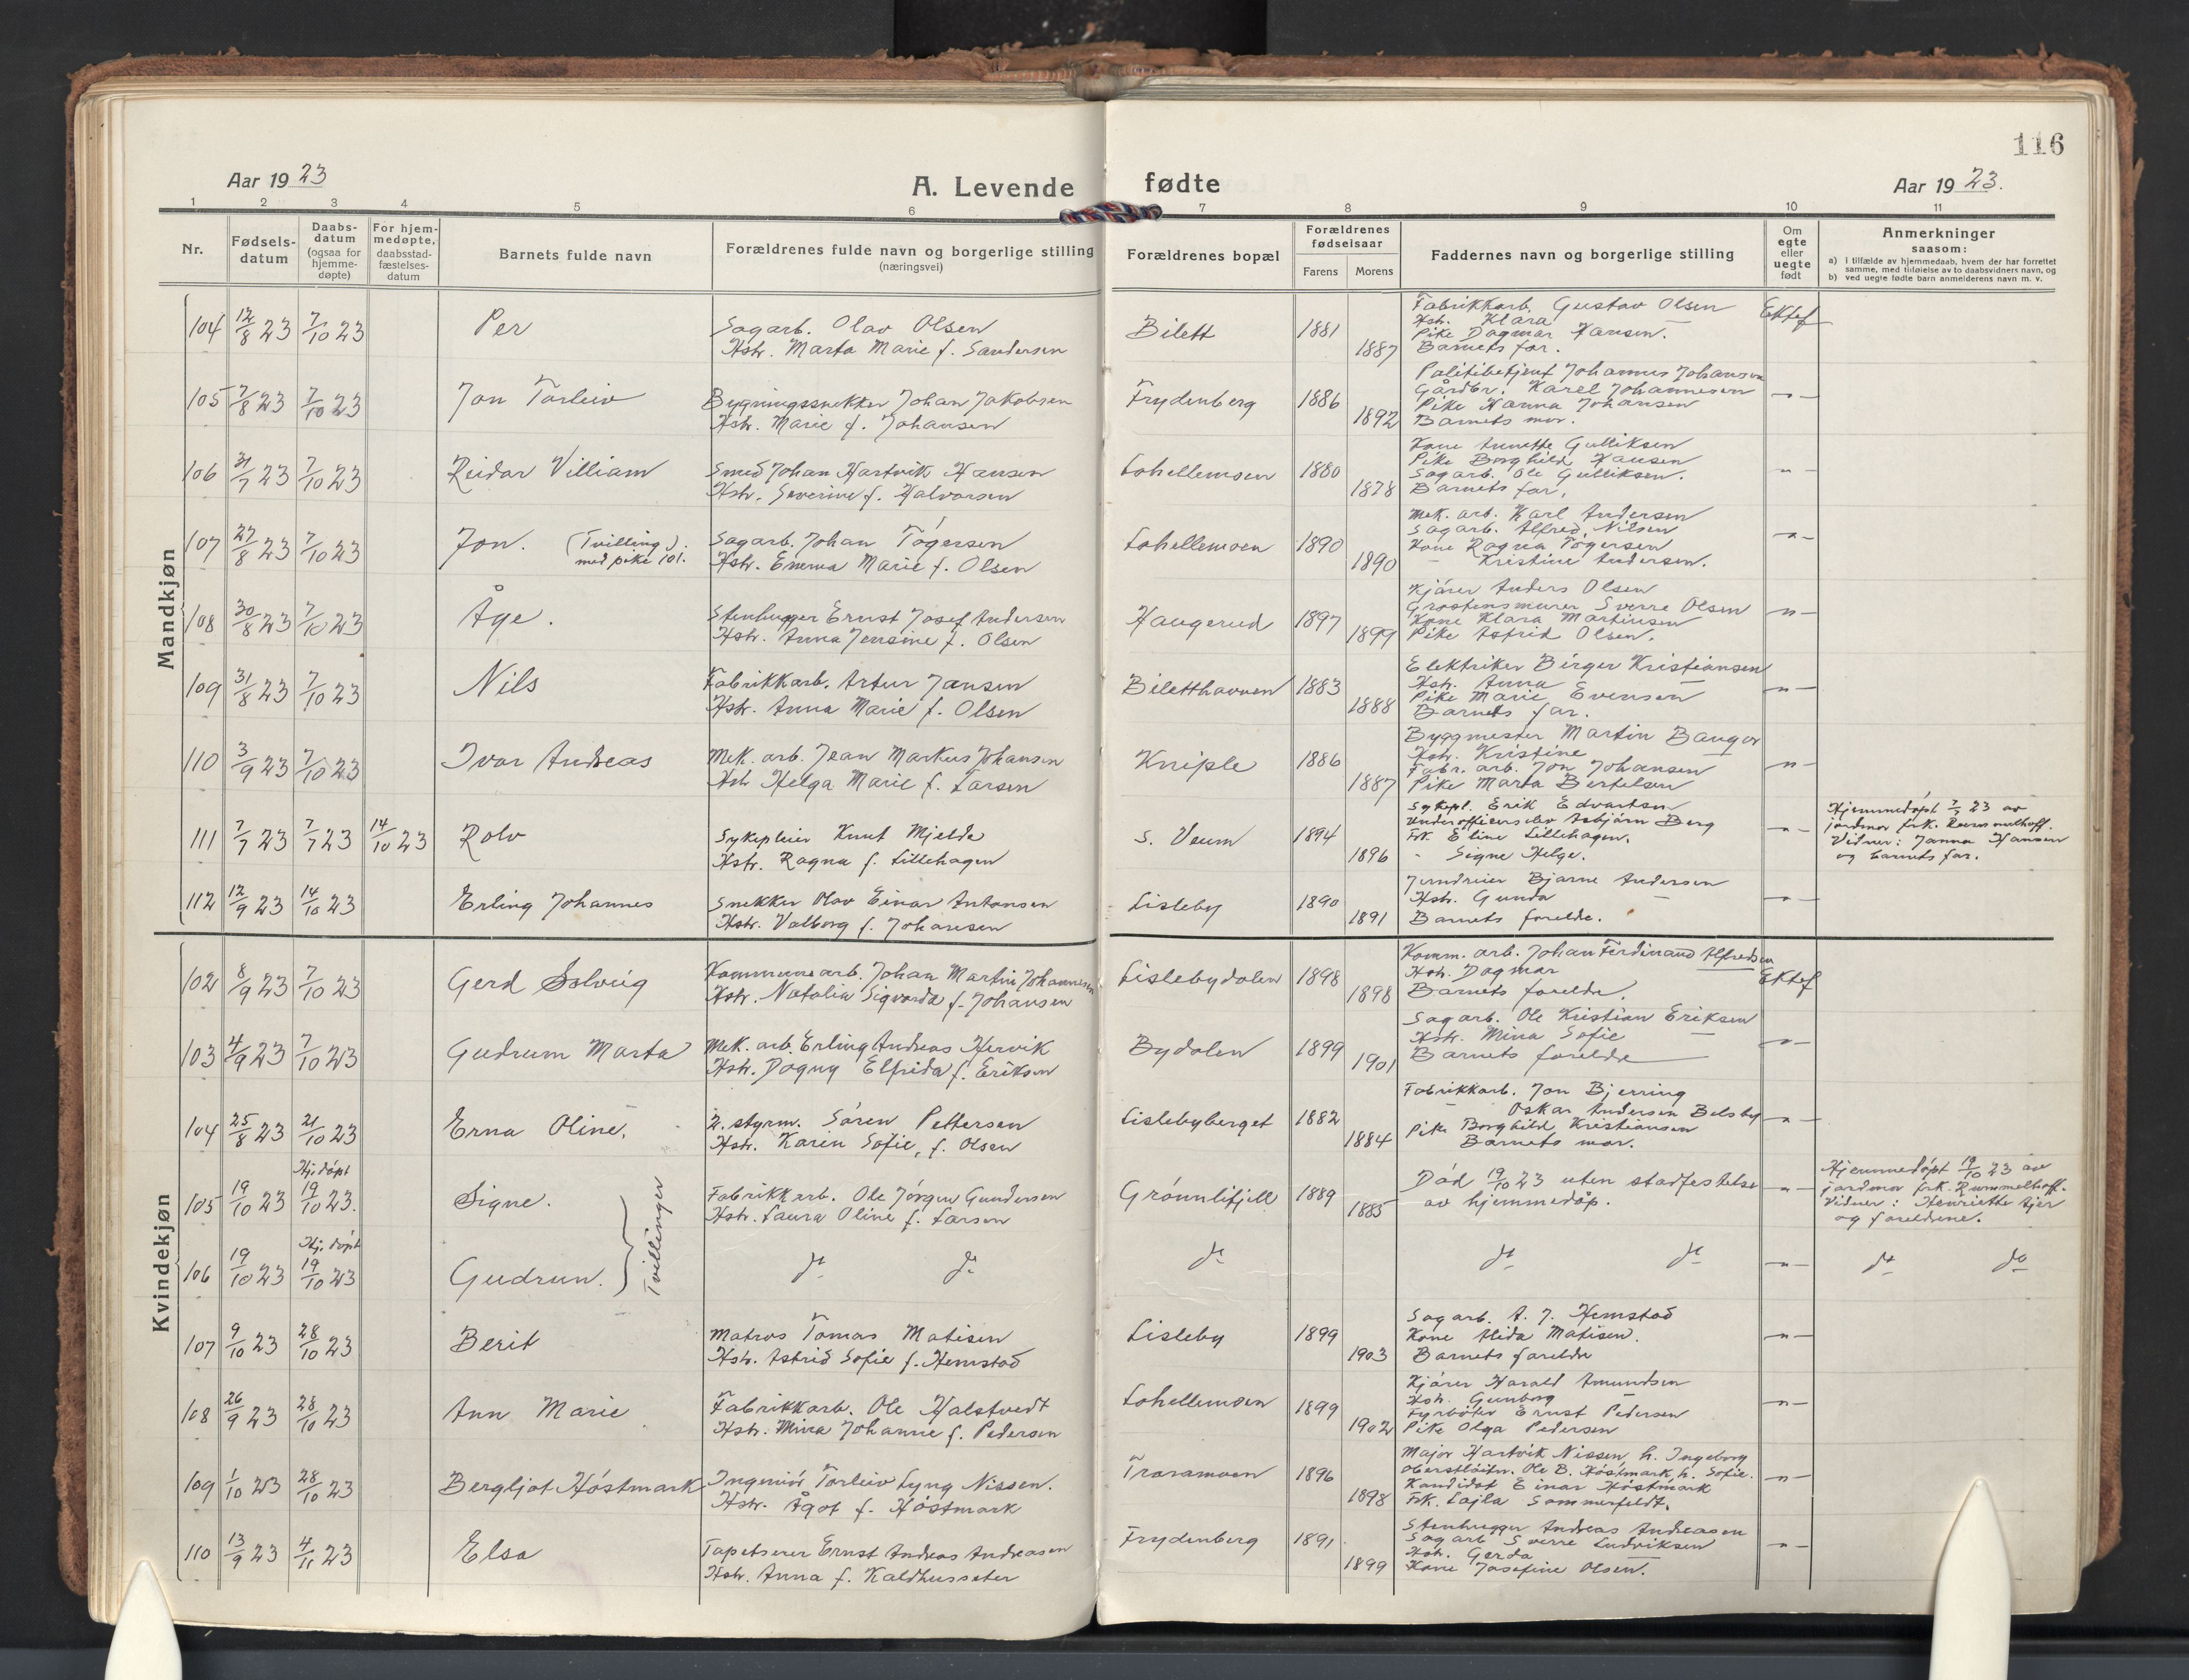 116
Aar 1923
A. Levende fødte
Aar 1923.
1 2 3 4 5 6 7 8 9 10 11
Nr.
Fødsels-datum
Daabs-datum (ogsaa for hjemme-døpte)
For hjem-medøpte, daabsstad-fæstelses-datum
Barnets fulde navn
Forældrenes fulde navn og borgerlige stilling (næringsvei)
Forældrenes bopæl
Forældrenes fødselsaar
Farens Morens
Faddernes navn og borgerlige stilling
Om egte eller uegte født
Anmerkninger saasom:
a) i tilfælde av hjemmedaab, hvem der har forrettet samme, med tilføielse av to daabsvidners navn, og
b) ved uegte fødte barn anmelderens navn m. v.
Mandkjøn
104 12/8 23 7/10 23 Per
Sagarb. Olav Olsen
Hstr. Marta Marie f. Sandersen
Bilett 1881 1887
Fabrikkarb. Gustav Olsen
Hstr. Klara —
Pike Dagmar Hansen.
Barnets far.
Ektef
105 7/8 23 7/10 23 Jon Torleiv
Bygningssnekker Johan Jakobsen
Hstr. Marie f. Johansen
Frydenberg 1886 1892
Politibetjent Johannes Johansen
Gårdbr. Karel Johannesen
Pike Hanna Johansen
Barnets mor.
-"-
106 31/7 23 7/10 23 Reidar Villiam
Smed Johan Hartvik Hansen
Hstr. Severine f. Halvorsen
Lahellemoen 1880 1878
Kone Annette Gulliksen
Pike Borghild Hansen
Sagarb. Ole Gulliksen.
Barnets far.
-"-
107 27/8 23 7/10 23 Jon. (Tvilling) med pike 101.
Sagarb. Johan Tógersen
Hstr. Emma Marie f. Olsen
Lahellemoen 1890 1890
Mek. arb. Karl Andersen
Sagarb. Alfred Nilsen
Kone Ragna Tógersen
- Kristine Andersen.
-"-
108 30/8 23 7/10 23 Åge.
Stenhugger Ernst Josef Andersen
Hstr. Anna Jensine f. Olsen
Haugerud 1897 1899
Kjórer Anders Olsen
Gråstensmurer Sverre Olsen
Kone Klara Martinsen
Pike Astrid Olsen.
-"-
109 31/8 23 7/10 23 Nils
Fabrikkarb. Artur Jansen
Hstr. Anna Marie f. Olsen
Biletthavven 1883 1888
Elektriker Birger Kristiansen
Hstr. Anna —
Pike Marie Evensen
Barnets far.
-"-
110 3/9 23 7/10 23 Ivar Andreas
Mek. arb. Jean Markus Johansen
Hstr Helga Marie f. Larsen
Kniple 1886 1887
Byggmester Martin Bauger
Hstr. Kristine —
Fabr. arb. Jon Johansen
Pike Marta Bertelsen
-"-
111 7/7 23 7/7 23 14/10 23 Rolv
Sykepleier Knut Mjelde
Hstr. Ragna f. Lillehagen
S. Veum 1894 1896
Sykepl. Erik Edvartsen
Underoffiserselev Asbjörn Berg
Frk. Eline Lillehagen.
" Signe Helge.
-"-
Hjemmedópt 7/7 23 av
jordmor frk. Rummelhoff.
Vidner: Janna Hansen
og barnets far.
112 12/9 23 14/10 23 Erling Johannes
Snekker Olav Einar Antonsen
Hstr. Valborg f. Johansen
Lisleby 1890 1891
Jerndreier Bjarne Andersen
Hstr. Gunda —
Barnets foreldre.
-"-
Kvindekjøn
102 8/9 23 7/10 23 Gerd Solveig
Kommunearb. Johan Martin Johannesen
Hstr. Natalia Sigvarda f. Johansen
Lislebydalen 1898 1898
Komm. arb. Johan Ferdinand Alfredsen
Hstr. Dagmar —
Barnets foreldre.
Ektef
103 4/9 23 7/10 23 Gudrun Marta
Mek. arb. Erling Andreas Hervik
Hstr. Dagny Elfrida f. Eriksen
Bydalen 1899 1901
Sagarb. Ole Kristian Eriksen
Hstr. Mina Sofie —
Barnets foreldre
-"-
104 25/8 23 21/10 23 Erna Oline.
2. styrm. Sóren Pettersen
Hstr. Karin Sofie, f. Olsen
Lislebyberget 1882 1884
Fabrikkarb. Jon Bjerring
- Oskar Andersen Belsby
Pike Borghild Kristiansen
Barnets mor.
-"-
105 19/10 23 Hj. dópt 19/10 23. Signe.
Fabrikkarb. Ole Jórgen Gundersen
Hstr. Laura Oline f. Larsen
Grónnlifjell 1889 1885
Död 19/10 23 uten stadfestelse
av hjemmedåp.
-"-
Hjemmedópt 19/10 23 av
jordmor frk. Rummelhoff.
Vidner: Henriette
og foreldrene.
Tvillinger
106 19/10 23 Hj. dópt 19/10 23 Gudrun.
do do do do do -"- do do
107 9/10 23 28/10 23 Berit
Matros Tomas Matisen
Hstr. Astrid Sofie f. Hemstad
Lisleby 1899 1903
Sagarb. A. J. Hemstad
Kone Alida Matisen.
Barnets foreldre
-"-
108 26/9 23 28/10 23 Ann Marie
Fabrikkarb. Ole Halstvedt
Hstr. Mina Johanne f. Pedersen
Lahellemoen 1899 1902
Kjórer Harald Amundsen
Hstr. Gunborg —
Fyrböter Ernst Pedersen
Pike Olga Pedersen
-"-
109 1/10 23 28/10 23 Bergljot Hóstmark
Ingeniór Torleiv Lyng Nissen.
Hstr. Ågot f. Hóstmark
Traramoen 1896 1898
Major Hartvik Nissen, h. Ingeborg
Oberstlöitn. Ole B. Hóstmark, h. Sofie.
Kandidat Einar Hóstmark
Frk. Lajla Sommerfeldt.
-"-
110 13/9 23 4/11 23 Elsa
Tapetserer Ernst Andreas Andreasen
Hstr. Anna f. Kaldhusseter
Frydenberg 1891 1899
Stenhugger Andreas Andreasen
Sagarb Sverre Ludviksen
Hstr. Gerda —
Kone Josefine Olsen.
-"-